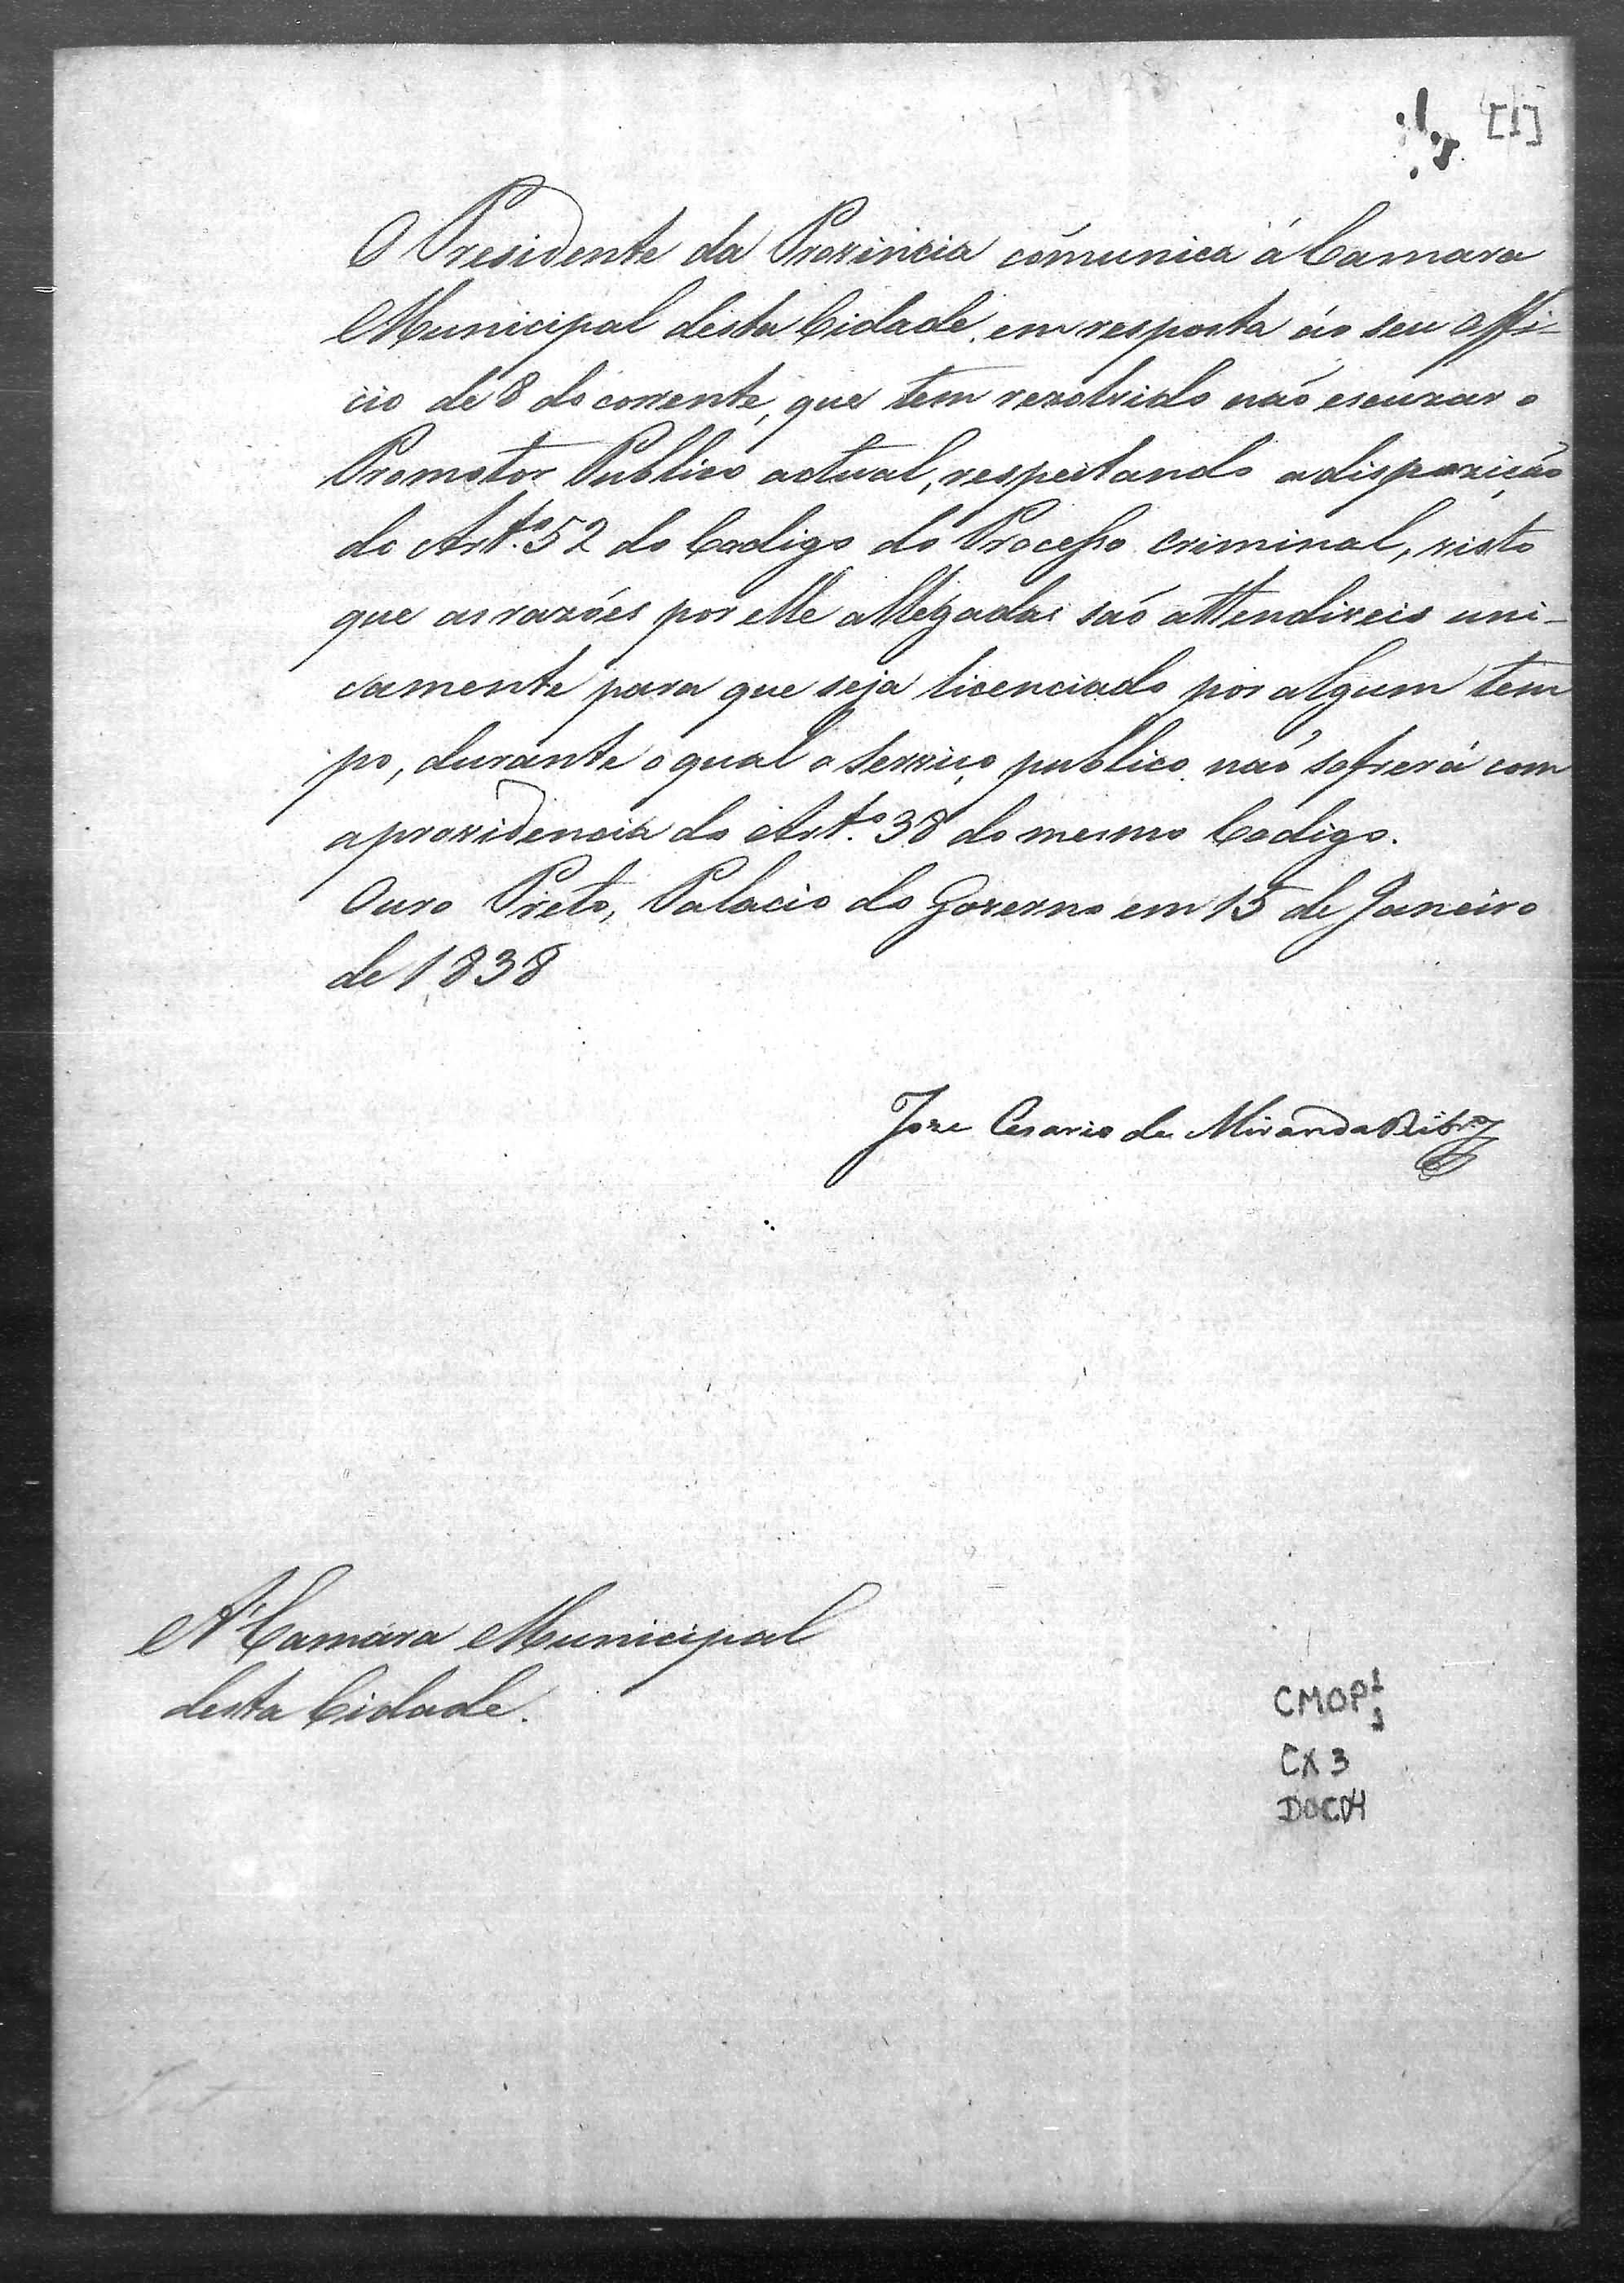 [1]
O Presidente da Provincia cómunica á Camara
Municipal desta Cidade, em resposta áo seu Offi-
cio de 8 do corrente, que tem rezolvido não escuzar o
Promotor Publico actual, respeitando a dispozição
do Art.º 52 do Codigo do Processo Criminal, visto
que as razões por elle allegadas são attendiveis uni-
camente para que seja licenciado por algum tem
po, durante o qual o serviço publico não sofrerá com
a providencia do Art.º 38 do mesmo Codigo.
Ouro Preto, Palacio do Governo em 15 de Janeiro
de 1838
Joze Cesario de Miranda Ribrº
A' Camara Municipal
desta Cidade.
CMOP
CX 3
DOC 04